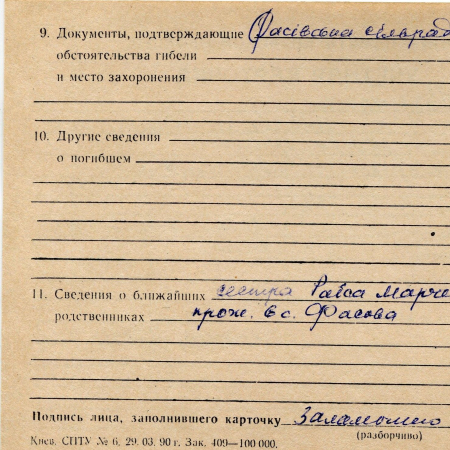 9. Документы, подтверждающие Фасівська сільрад
обстоятельства гибели
и место захоронения
10. Другие сведения
о погибшем
11. Сведения о ближайших сестра Раїса Марче
родственниках прож. в с. Фасова
Подпись лица, заполнившего карточку
(разборчиво)
Киев. СПТУ № 6. 29. 03. 90 г. Зак. 409—100 000.